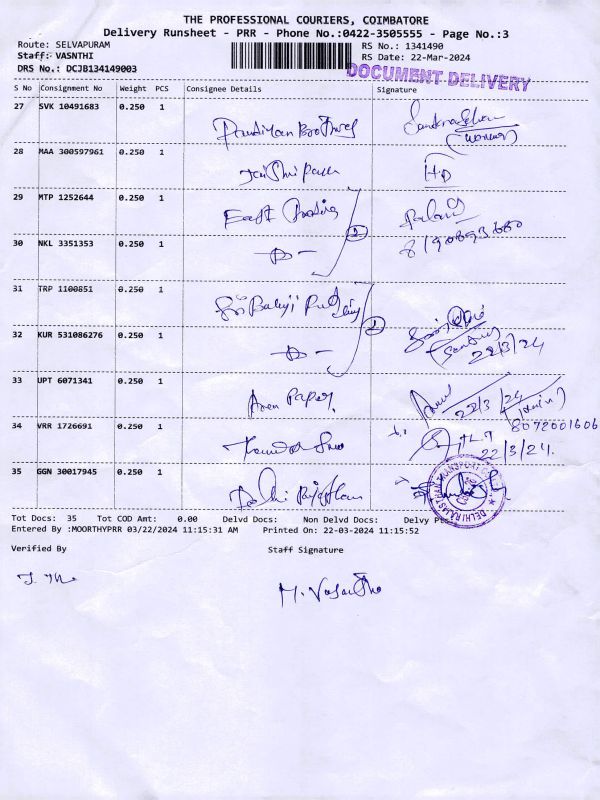 THE PROFESSIONAL COURIERS, COIMBATORE
Delivery Runsheet - PRR - Phone No.:0422-3505555 - Page No.:3
Route: SELVAPURAM
RS No.: 1341490
Staff: VASNTHI
RS Date: 22-Mar-2024
DRS No.: DCJB134149003
DOCUMENT DELIVERY
S No Consignment No Weight PCS Consignee Details Signature
27 SVK 10491683 0.250 1 Brothers
28 MAA 300597961 0.250 1
29 MTP 1252644 0.250 1 East Trading
30 NKL 3351353 0.250 1 - D - 2
31 TRP 1100851 0.250 1 Sri Balaji
32 KUR 531086276 0.250 1 - D - 22/3/24
33 UPT 6071341 0.250 1 Paper 22/3/24
34 VRR 1726691 0.250 1 8072001606
22/3/24.
35 GGN 30017945 0.250 1 Delhi Rajasthan
DELHI RAJASTHAN TRANSPORT
Tot Docs: 35 Tot COD Amt: 0.00 Delvd Docs: Non Delvd Docs: Delvy
Entered By :MOORTHYPRR 03/22/2024 11:15:31 AM Printed On: 22-03-2024 11:15:52
Verified By Staff Signature
M. Vasantha